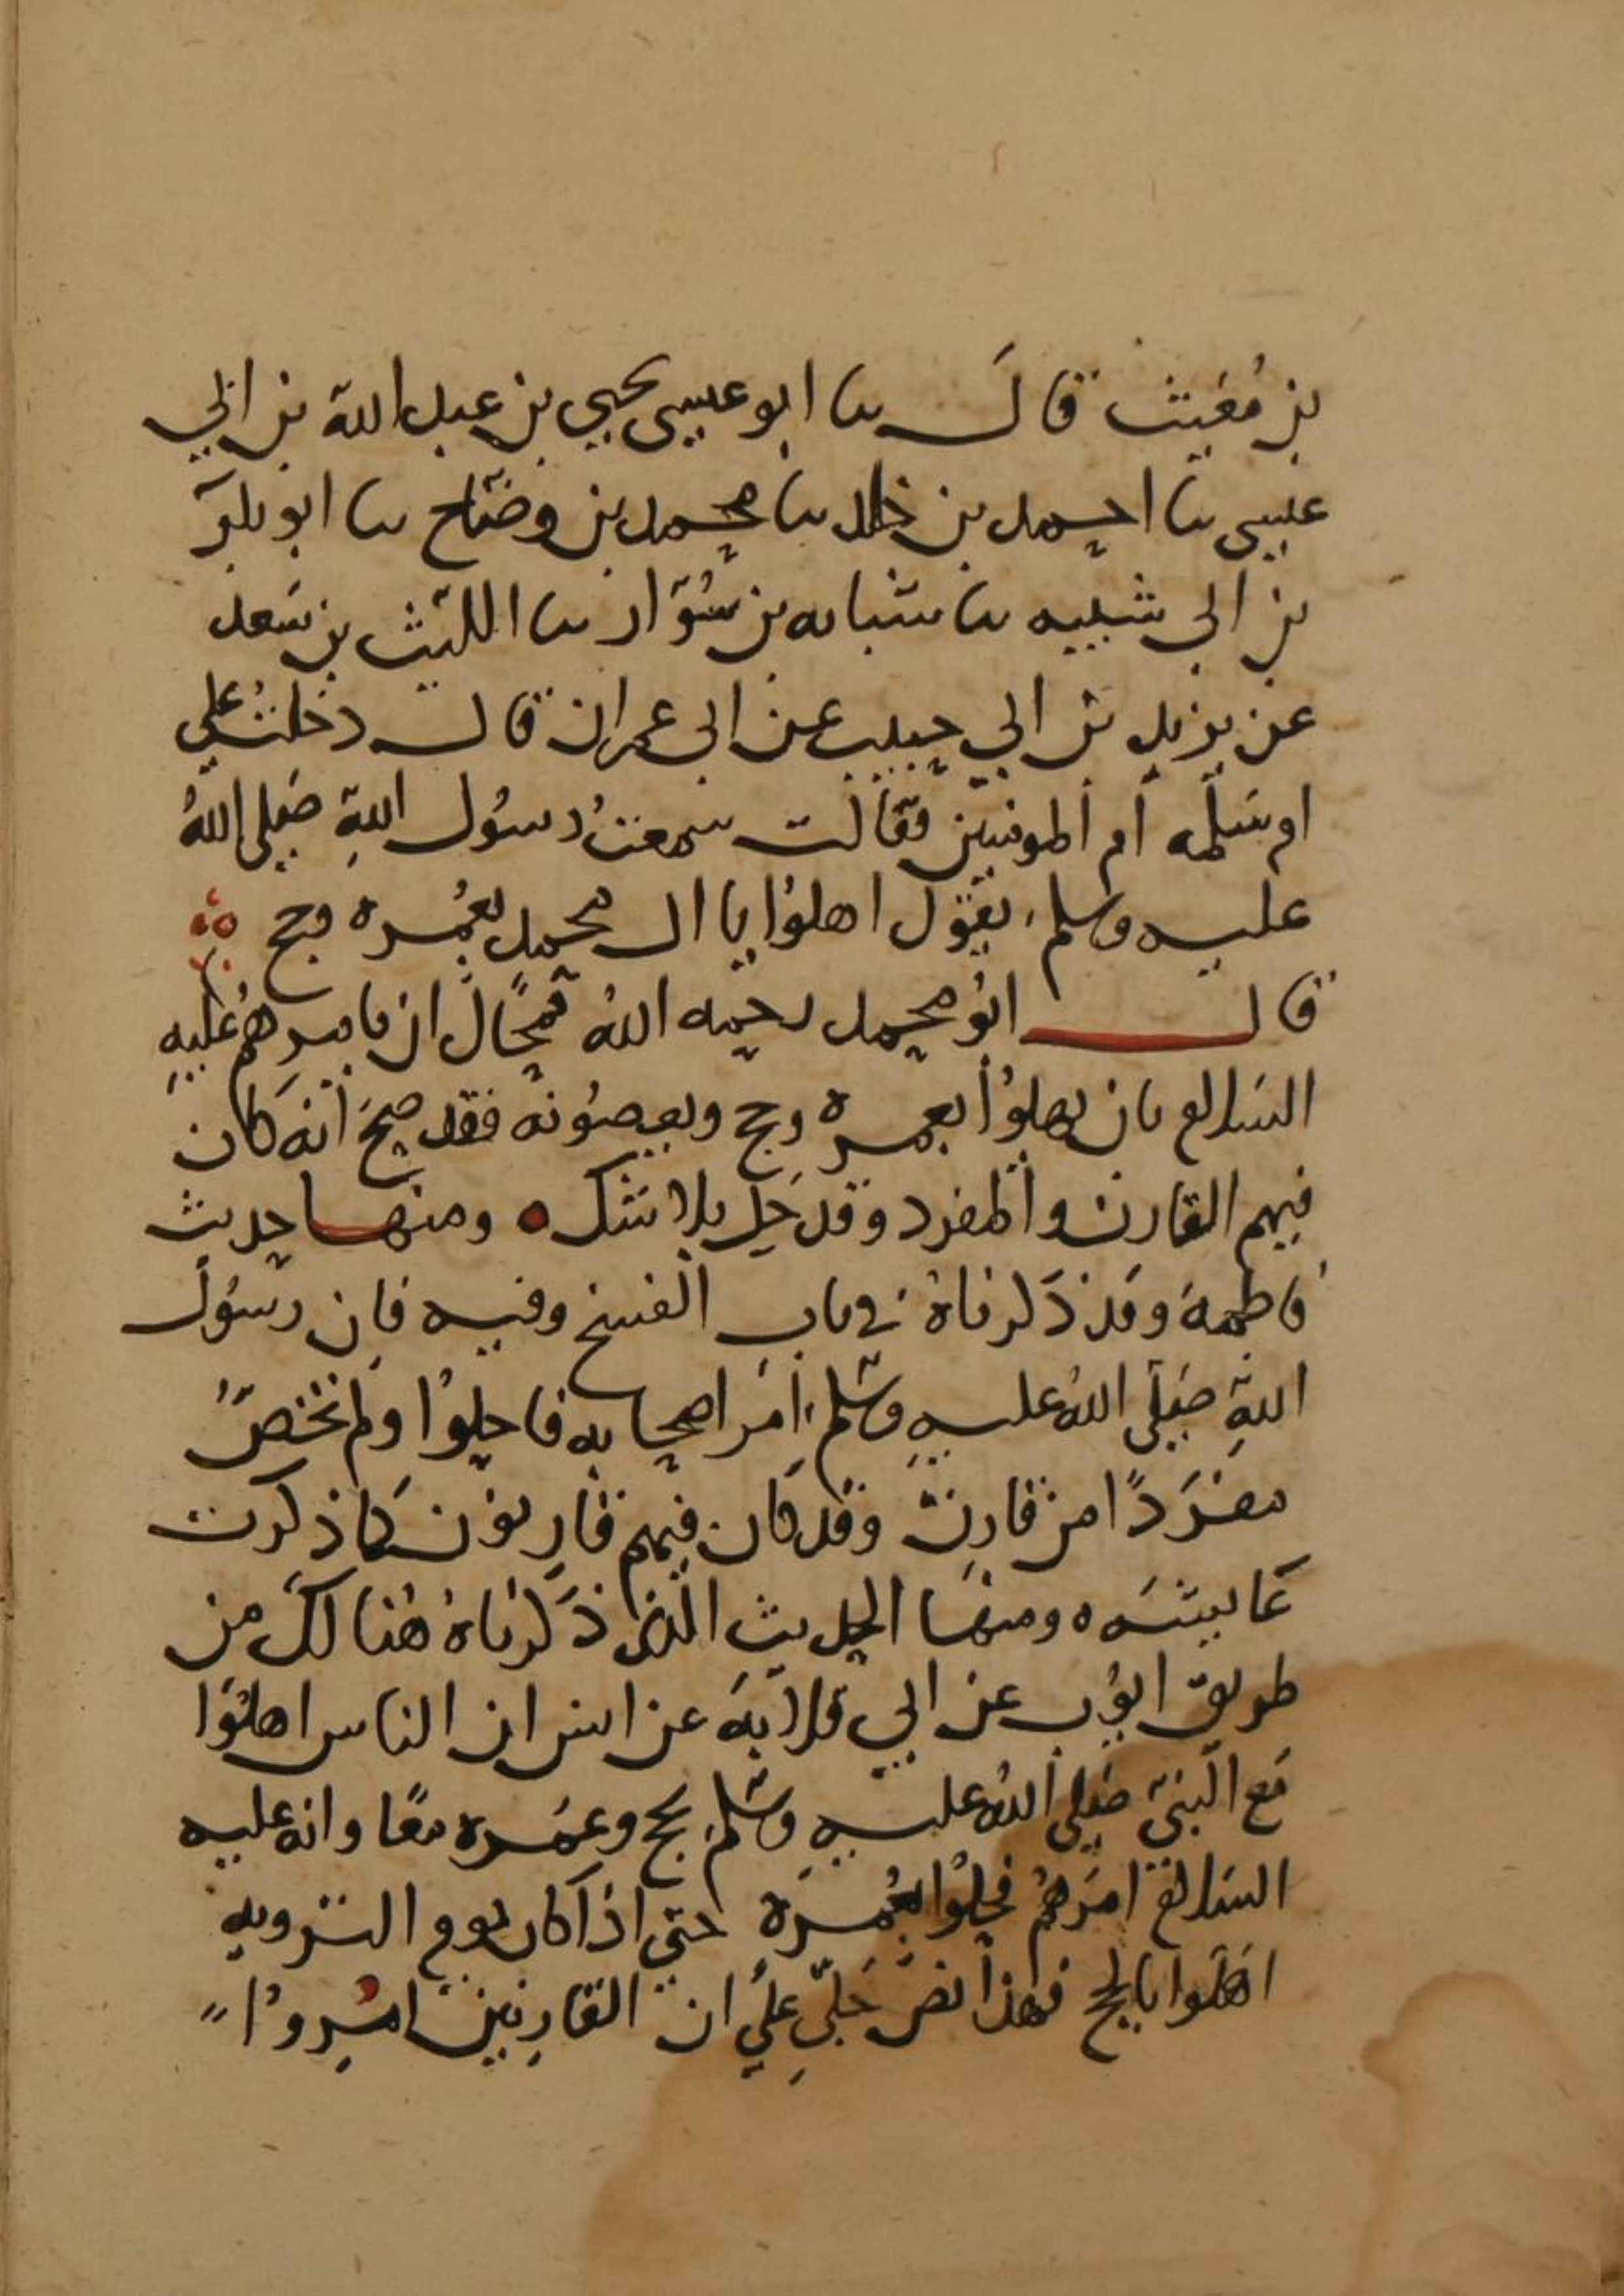 بن مُغيث قالَ نا ابو عيسى يحيى بن عبد الله بن ابي
عيسى نا احمد بن خالد نا محمد بن وضّاح نا ابو بكر
بن ابي شيبه نا شبابه بن سَوّار نا الليث بن سَعد
عن يزيد بن ابي حبيب عن ابي عمران قال دخلتُ علي
ام سَلمه أم المومنين فقالت سمعتُ رسُول اللهِ صَلى اللهُ
عليه وسلم يقول اهلوُا يا ال محمد بعُمره وحج
قال ابُو محمد رحمه اللهُ فمحَالٌ ان يامرهمُ عليهِ
السَلام بان يهلوُا بعمره وحج ويعصُونَه فقد صحَ أنه كان
فيهم القارن والمفرد وقد حَل بلا شَك ومنها حديث
فاطمة وقد ذَكرناهُ في باب الفسخ وفيه فان رسُول
اللهِ صَلى اللهُ عليهِ وسَلم امَر اصحابه فاحلوُا ولم تخصَّ
مفرَدًا من قارن وقد كان فيهم قارِنون كما ذكرت
عَايشَه ومنهَا الحديث الذي ذَكرناهُ هُنا لكَ من
طريق ايوُب عن ابي قلابَةَ عن انس ان الناس اهلّوا
مَع النبيّ صَلى اللهُ عليهِ وسَلم بحج وعمُره معًا وانه عليه
السَلام امَرهمُ فحلوُا بعُمرَة حتى اذا كان يوم الترويه
اهَلوا بالحج فهذا نصٌ جَليّ عليُ ان القارِنين امُرِوُا